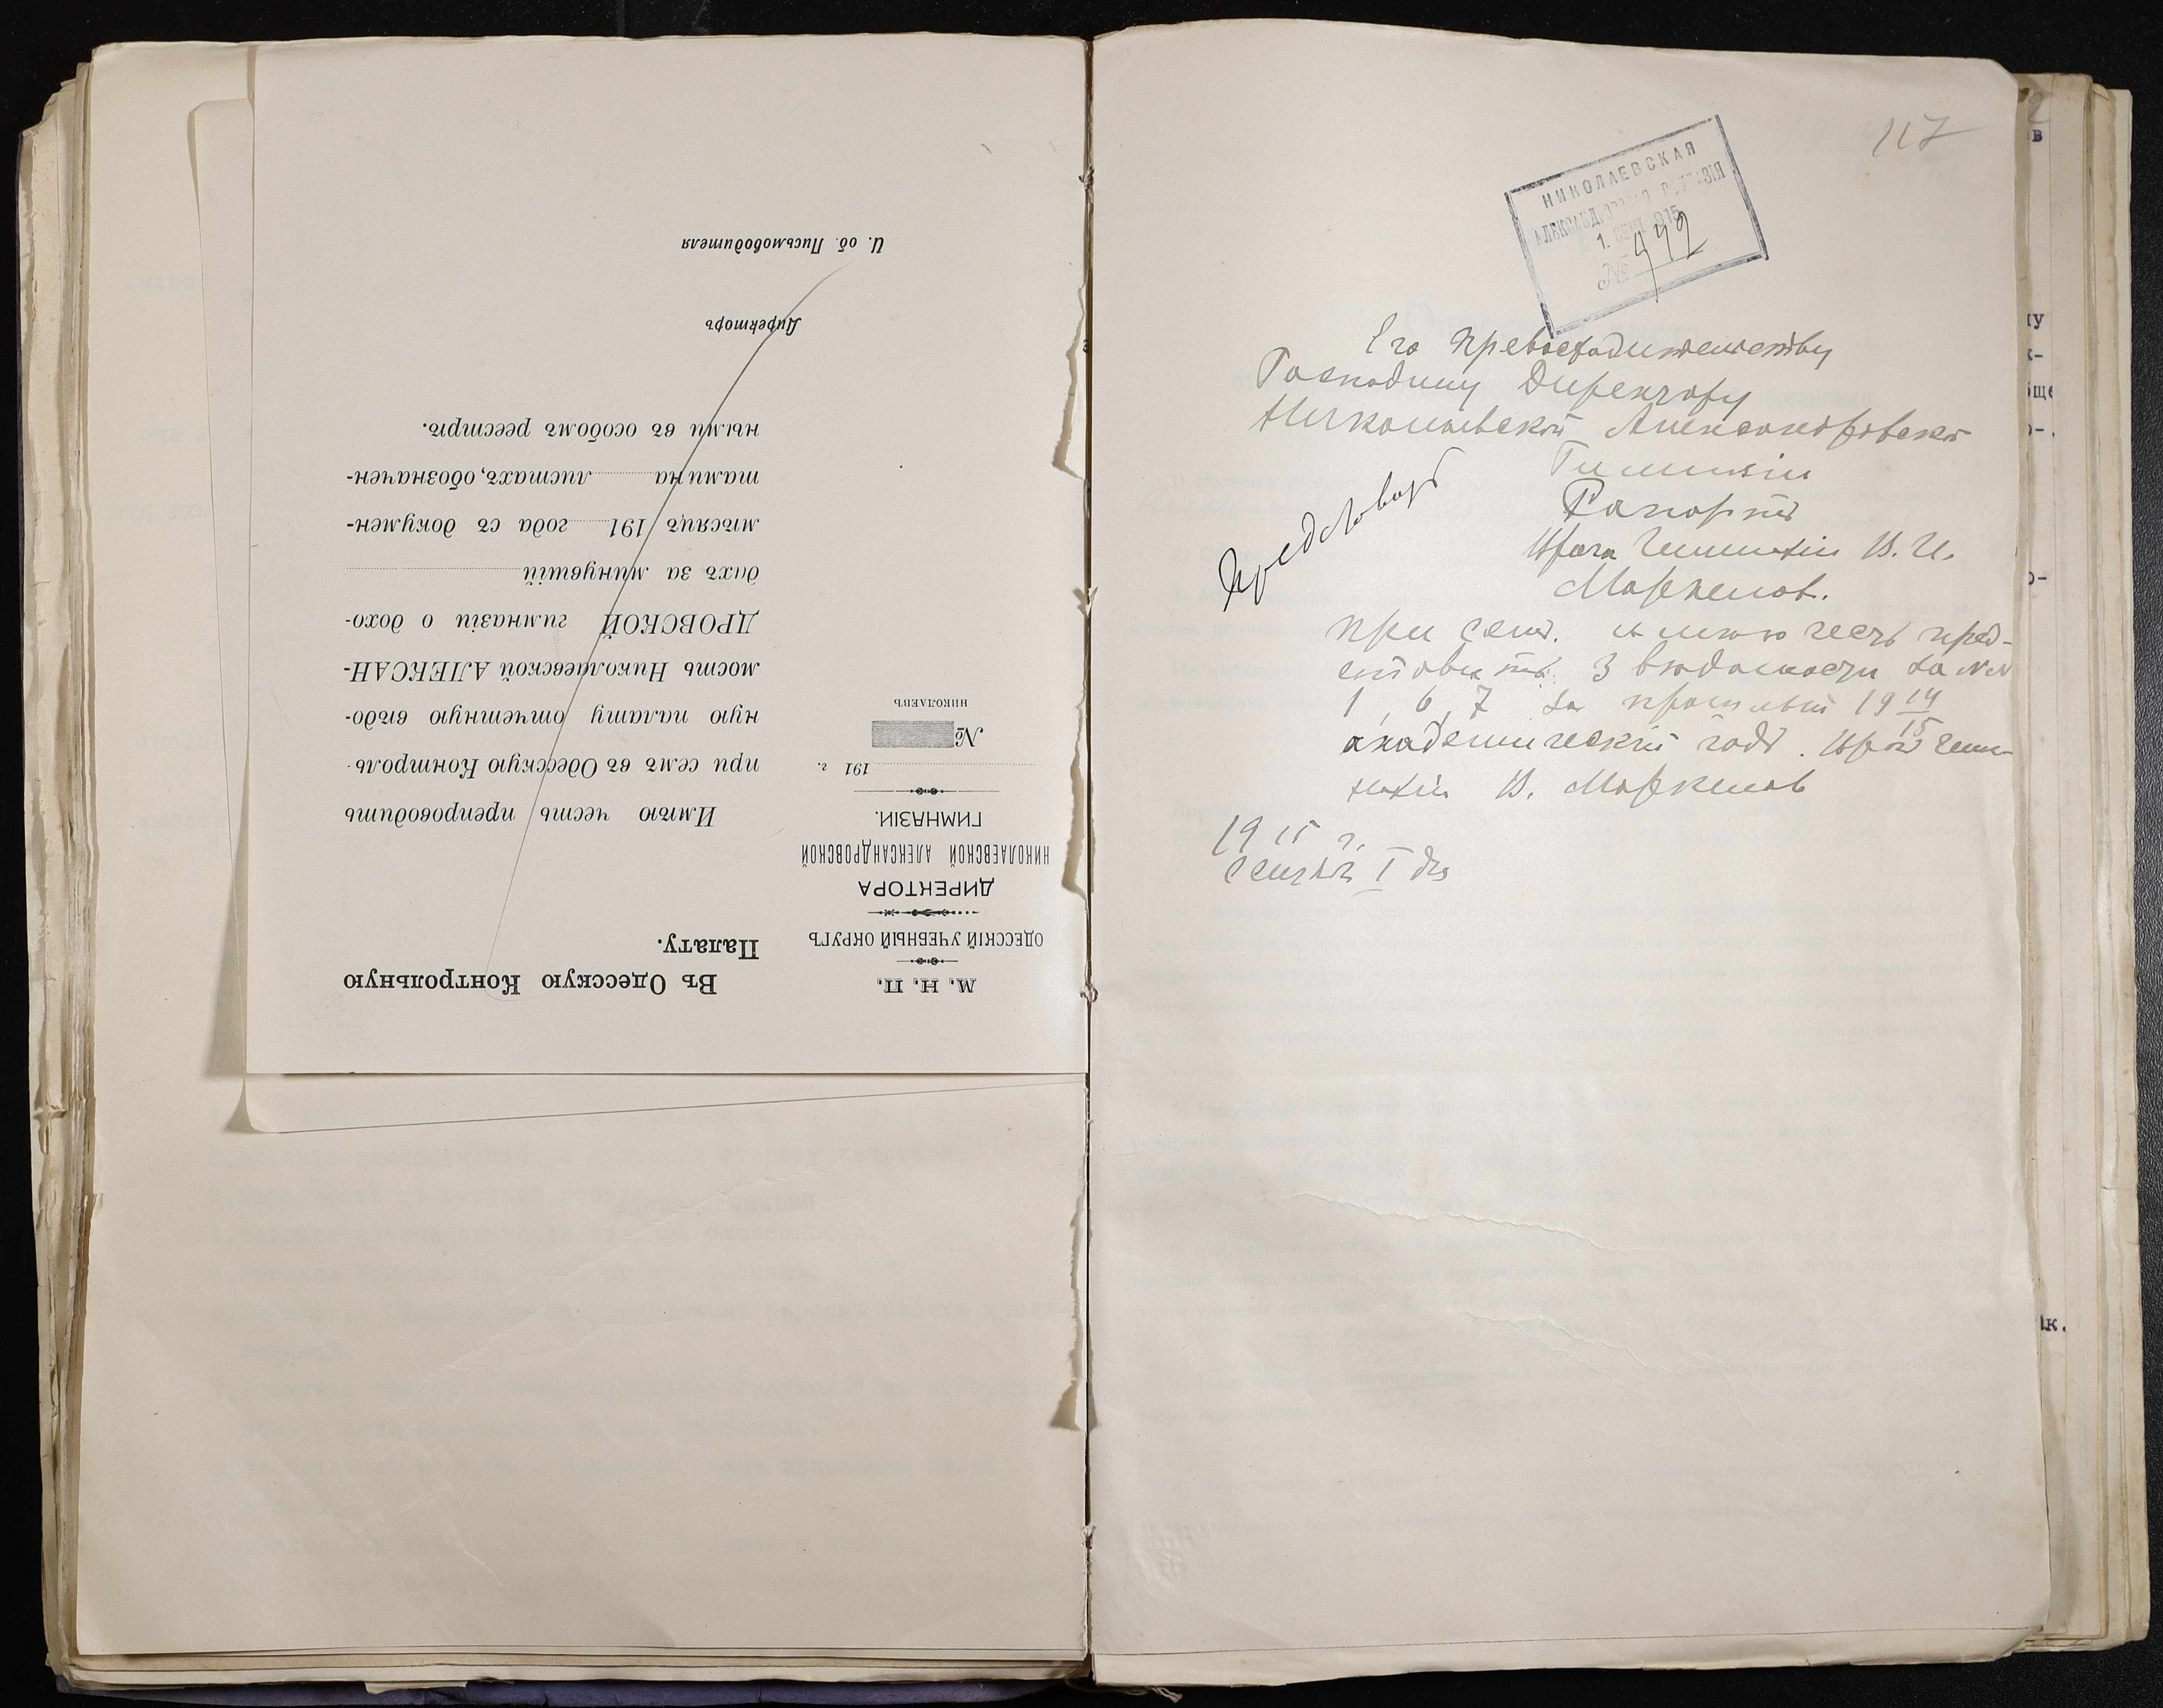 М. Н. П.
ОДЕССКІЙ УЧЕБНЫЙ ОКРУГЪ
ДИРЕКТОРА
НИКОЛАЕВСКОЙ АЛЕКСАНДРОВСКОЙ
ГИМНАЗІИ.
191 г.
№
НИКОЛАЕВЪ
Въ Одесскую Контрольную
Палату.
Имѣю честь препроводить
при семъ въ Одесскую Контроль-
ную палату отчетную вѣдо-
мость Николаевской АЛЕКСАН-
ДРОВСКОЙ гимназіи о дохо-
дахъ за минувшій
мѣсяцъ 191 года съ докумен-
тами на листахъ, обозначен-
ными въ особомъ реестрѣ.
Директоръ
И. об. Письмоводителя
117
НИКОЛАЕВСКАЯ
АЛЕКСАНДРОВСКАЯ ГИМНАЗІЯ
1. СЕН. 1915
№ 492
Его Превосходительству
Господину Директору
Николаевской Александровской
Гимназіи
Рапортъ
Врача Гимназіи В. И.
Представить
При семъ имѣю честь пред-
ставить 3 вѣдомости за №№
1, 6, 7 за прошлый 19 14/15
академическій годъ. Врачъ Гим-
назіи В.
1915 г.
Сентября 1 дня